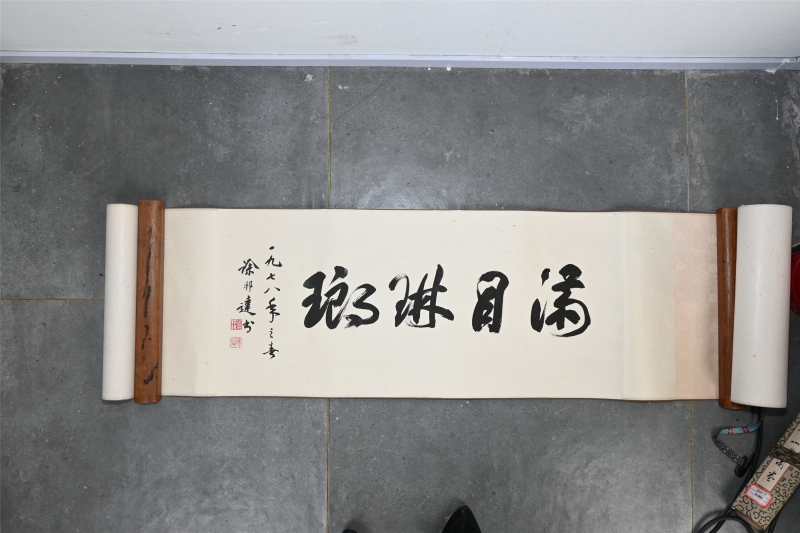 满目琳琅
一九七八年之春
徐祁达书